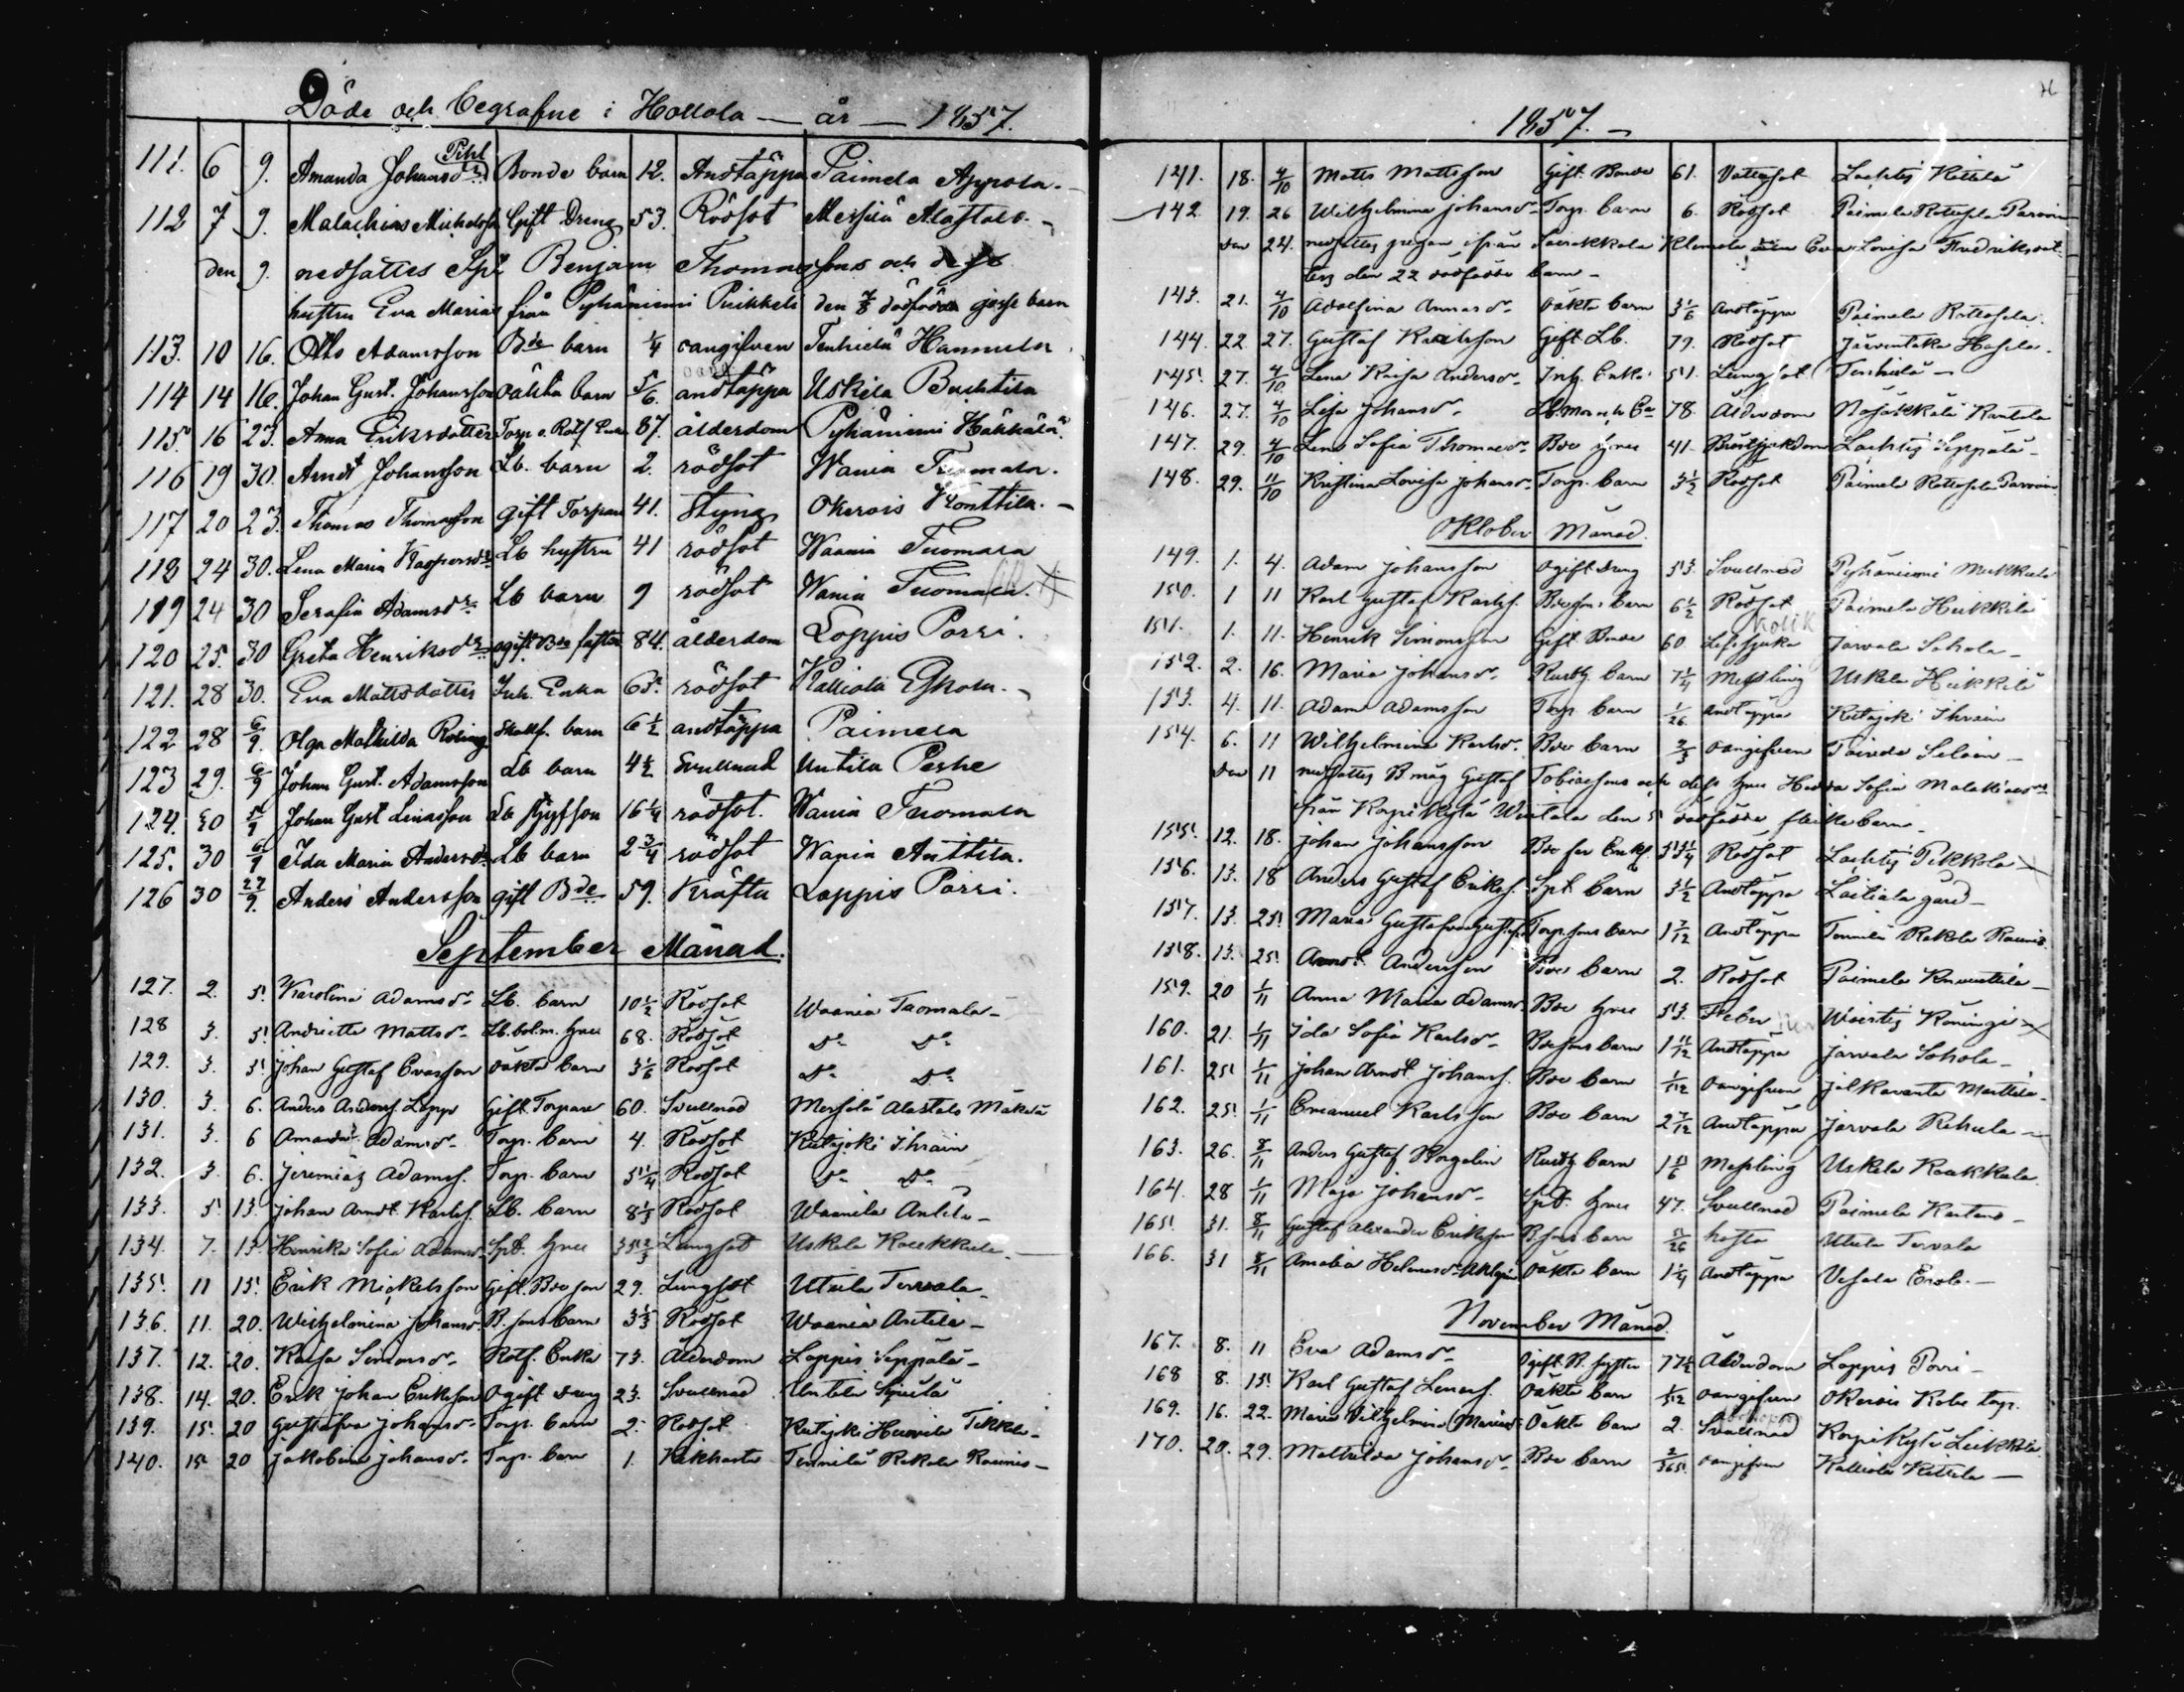 Döde och begrafne i Hollola — år — 1857.
111. 6 9. Amanda Johansdr Pihl Bonde barn 12. Andtäppa Paimela Appola.
112 7 9. Malachias Michelss Gift Dreng 53. Rödsot Messilä Alastalo.
den 9. nedsattes Sp. Benjam Thomassons och dess
hustru Eva Marias från Pyhäniemi Puikkeli den 7/8 dödfödda gosse barn
113. 10 16. Otto Adamsson Bde barn 1/4 oangifven Tenhielä Hannula
114 14 16. Johan Gust. Johansson oäkta barn 5/6. andtäppa Uskila Buchtila
115. 16 23. Anna Eriksdotter Torp. Enka 87. ålderdom Pyhäniemi Häkkälä.
116 19 30. Arndt Johansson Lb. barn 2. rödsot Wania Tuomala.
117 20 23. Thomas Thomasson gift Torpare 41. Styng Okerois Konttila. —
118 24 30. Lena Maria Kaspersdr Lb hustru 41 rödsot Waania Tuomala
119 24 30 Serafia Adamsdr Lb barn 9 rödsot Wania Tuomala.
120 25. 30 Greta Henriksdr ogift Bde syster 84. ålderdom Loppis Porri.
121. 28 30. Eva Mattsdotter Inh. Enka 63. rödsot Kalliola Eskola.
122 28 6/9. Olga Mathilda Rosing barn 6 1/2 andtäppa Paimela
123 29. 6/9 Johan Gust. Adamsson Lb barn 4 1/2 Svullnad Untila Peshe
124. 30 5/9 Johan Gust Linasson Lb styfson 16 1/4 rödsot. Wania Tuomala
125. 30 6/9 Ida Maria Andersdr Lb barn 2 3/4 rödsot Wania Anttila.
126 30 27/9. Anders Andersson gift Bde 59. Kräfta Loppis Porri.
September Månad.
127. 2. 5. Karolina Adamsdr Lb. barn 10 1/2 Rödsot Waania Tuomala —
128 3. 5. Andrietta Mattsdr Lb. hru 68. Rödsot Do Do
129. 3. 5. Johan Gustaf Evasson oäkta barn 3 1/6 Rödsot Do Do
130. 3. 6. Anders Lepp Gift Torpare 60. Svullnad Messilä Alastalo Mäkelä
131. 3. 6 Amanda Adamsdr Torp. barn 4. Rödsot Kutajoki Ihrain
132. 3. 6. Jeremias Adamss. Torp. barn 5 1/4 Rödsot Do Do
133. 5. 13. Johan Arndt Karlss. Lb. barn 8 1/3 Rödsot Waanila Antila —
134. 7. 13. Henrika Sofia Adamsdr Spb. hru 35 2/3 Lungsot Uskela Kaukkala —
135. 11 15. Erik Mickelsson Gift. Bde son 29. Lungsot Utula Tervala —
136. 11. 20. Wilhelmina Johansdr B. sons barn 3 1/3 Rödsot Waania Antila —
137. 12. 20. Kaisa Simonsdr Rotf. Enka 73. Ålderdom Loppis Seppälä —
138. 14. 20. Erik Johan Eriksson Ogift dreng 23. Svullnad Untila
139. 15. 20 Gustafva Johansdr Torp. barn 2. Rödsot Kutajoki Tikkla —
140. 15 20 Jakobina Johansdr Torp. barn 1. Kikhosta Tennilä Rekola Raunis —
1857. —
141. 18. 4/10 Matts Mattsson Gift. Bonde 61. Vattusot Lachtis Kittilä
142. 19. 26 Wilhelmina Johansdr Torp. barn 6. Rödsot Paimela Rottosela Paroin
den 24. nedsattes ifrån Sairakkala Klemola Eva Lovisa Fredriksdot-
ters den 22 dödfödde barn —
143. 21. 4/10 Adolfina Annasdr oäkta barn 3 1/6 Andtäppa Paimela Rottosela.
144. 22 27. Gustaf Karlsson Gift Lb. 79. Rödsot Järventaka Hasela.
145. 27. 4/10 Lena Kaisa Andersdr Inh. Enka 51. Lungsot Tenhiälä —
146. 27. 4/10 Lisa Johansdr 78. Ålderdom Nojäkkälä Rantala
147. 29. 4/10 Lena Sofia Thomasdr Bde hru 41. Bröstsjukdom Lachtis Seppälä —
148. 29. 11/10 Kristina Lovisa Johansdr Torp. barn 3 1/2 Rödsot Paimela Rottosela Paroin
Oktober Månad.
149. 1. 4. Adam Johansson Ogift dreng 53. Svullnad Pyhäniemi
150. 1 11 Karl Gustaf Karlss. Bdesons barn 6 1/2 Rödsot Paimela Heikkilä
151. 1. 11. Henrik Simonsson Gift Bonde 60 kolik Jarvala Sohola —
152. 2. 16. Maria Johansdr Rusth. barn 7 1/4 Messling Uskela Heikkilä
153. 4. 11. Adam Adamsson Torp. barn 1/26 Andtäppa Kutajoki Ihrain
154. 6. 11 Wilhelmina Karlsdr Bde barn 2/3 oangifven Toivola Silain —
den 11 nedsattes B.måg Gustaf Tobiassons och dess hru Hedda Sofia Malakiasdr
ifrån Korpikylä den 5 dödfödde flickebarn.
155. 12. 18. Johan Johansson Bde 53 3/4 Rödsot Lachtis Pekkola
156. 13. 18 Anders Gustaf Erikss. Spt. barn 3 1/2 Andtäppa Laitiala gård —
157. 13. 25. Maria Gustafva Torp. sons barn 1 7/12 Andtäppa Tennilä Rekola Raunis
158. 13. 25. Arndt Andersson Bde barn 2. Rödsot Paimela
159. 20 1/11 Anna Maria Adamsdr Bde hru 53. Feber
160. 21. 1/11 Ida Sofia Karlsdr Bdesons barn 1 11/12 Andtäppa Jarvala Sohola —
161. 25. 1/11 Johan Arndt Johanss. Bde barn 1/12 oangifven Jalkaranta Marttila —
162. 25. 1/11 Emanuel Karlsson Bde barn 2 7/12 Andtäppa Jarvala Rekula —
163. 26. 8/11 Anders Gustaf Rusth. barn 1 5/6 Messling Uskela Kaukkala
164. 28 1/11 Maja Johansdr Spb. hru 47. Svullnad Paimela
165. 31. 8/11 Gustaf Alexander Eriksson Bsons barn 5/26 hosta Utula Tervala
166. 31 8/11 Amalia Helenasdr oäkta barn 1 1/4 Andtäppa Vesala Erola —
November Månad.
167. 8. 11 Eva Adamsdr Ogift. B. syster 77 1/2 Ålderdom Loppis Porri —
168 8. 15. Karl Gustaf Lenass. Oäkta barn oangifven Okerois torp.
169. 16. 22. Maria Vilhelmina Mariasdr Oäkta barn 2. Svullnad Korpikylä Leikkola
170. 20. 29. Mathilda Johansdr Bde barn 2/365 oangifven Kalliola Kettula —